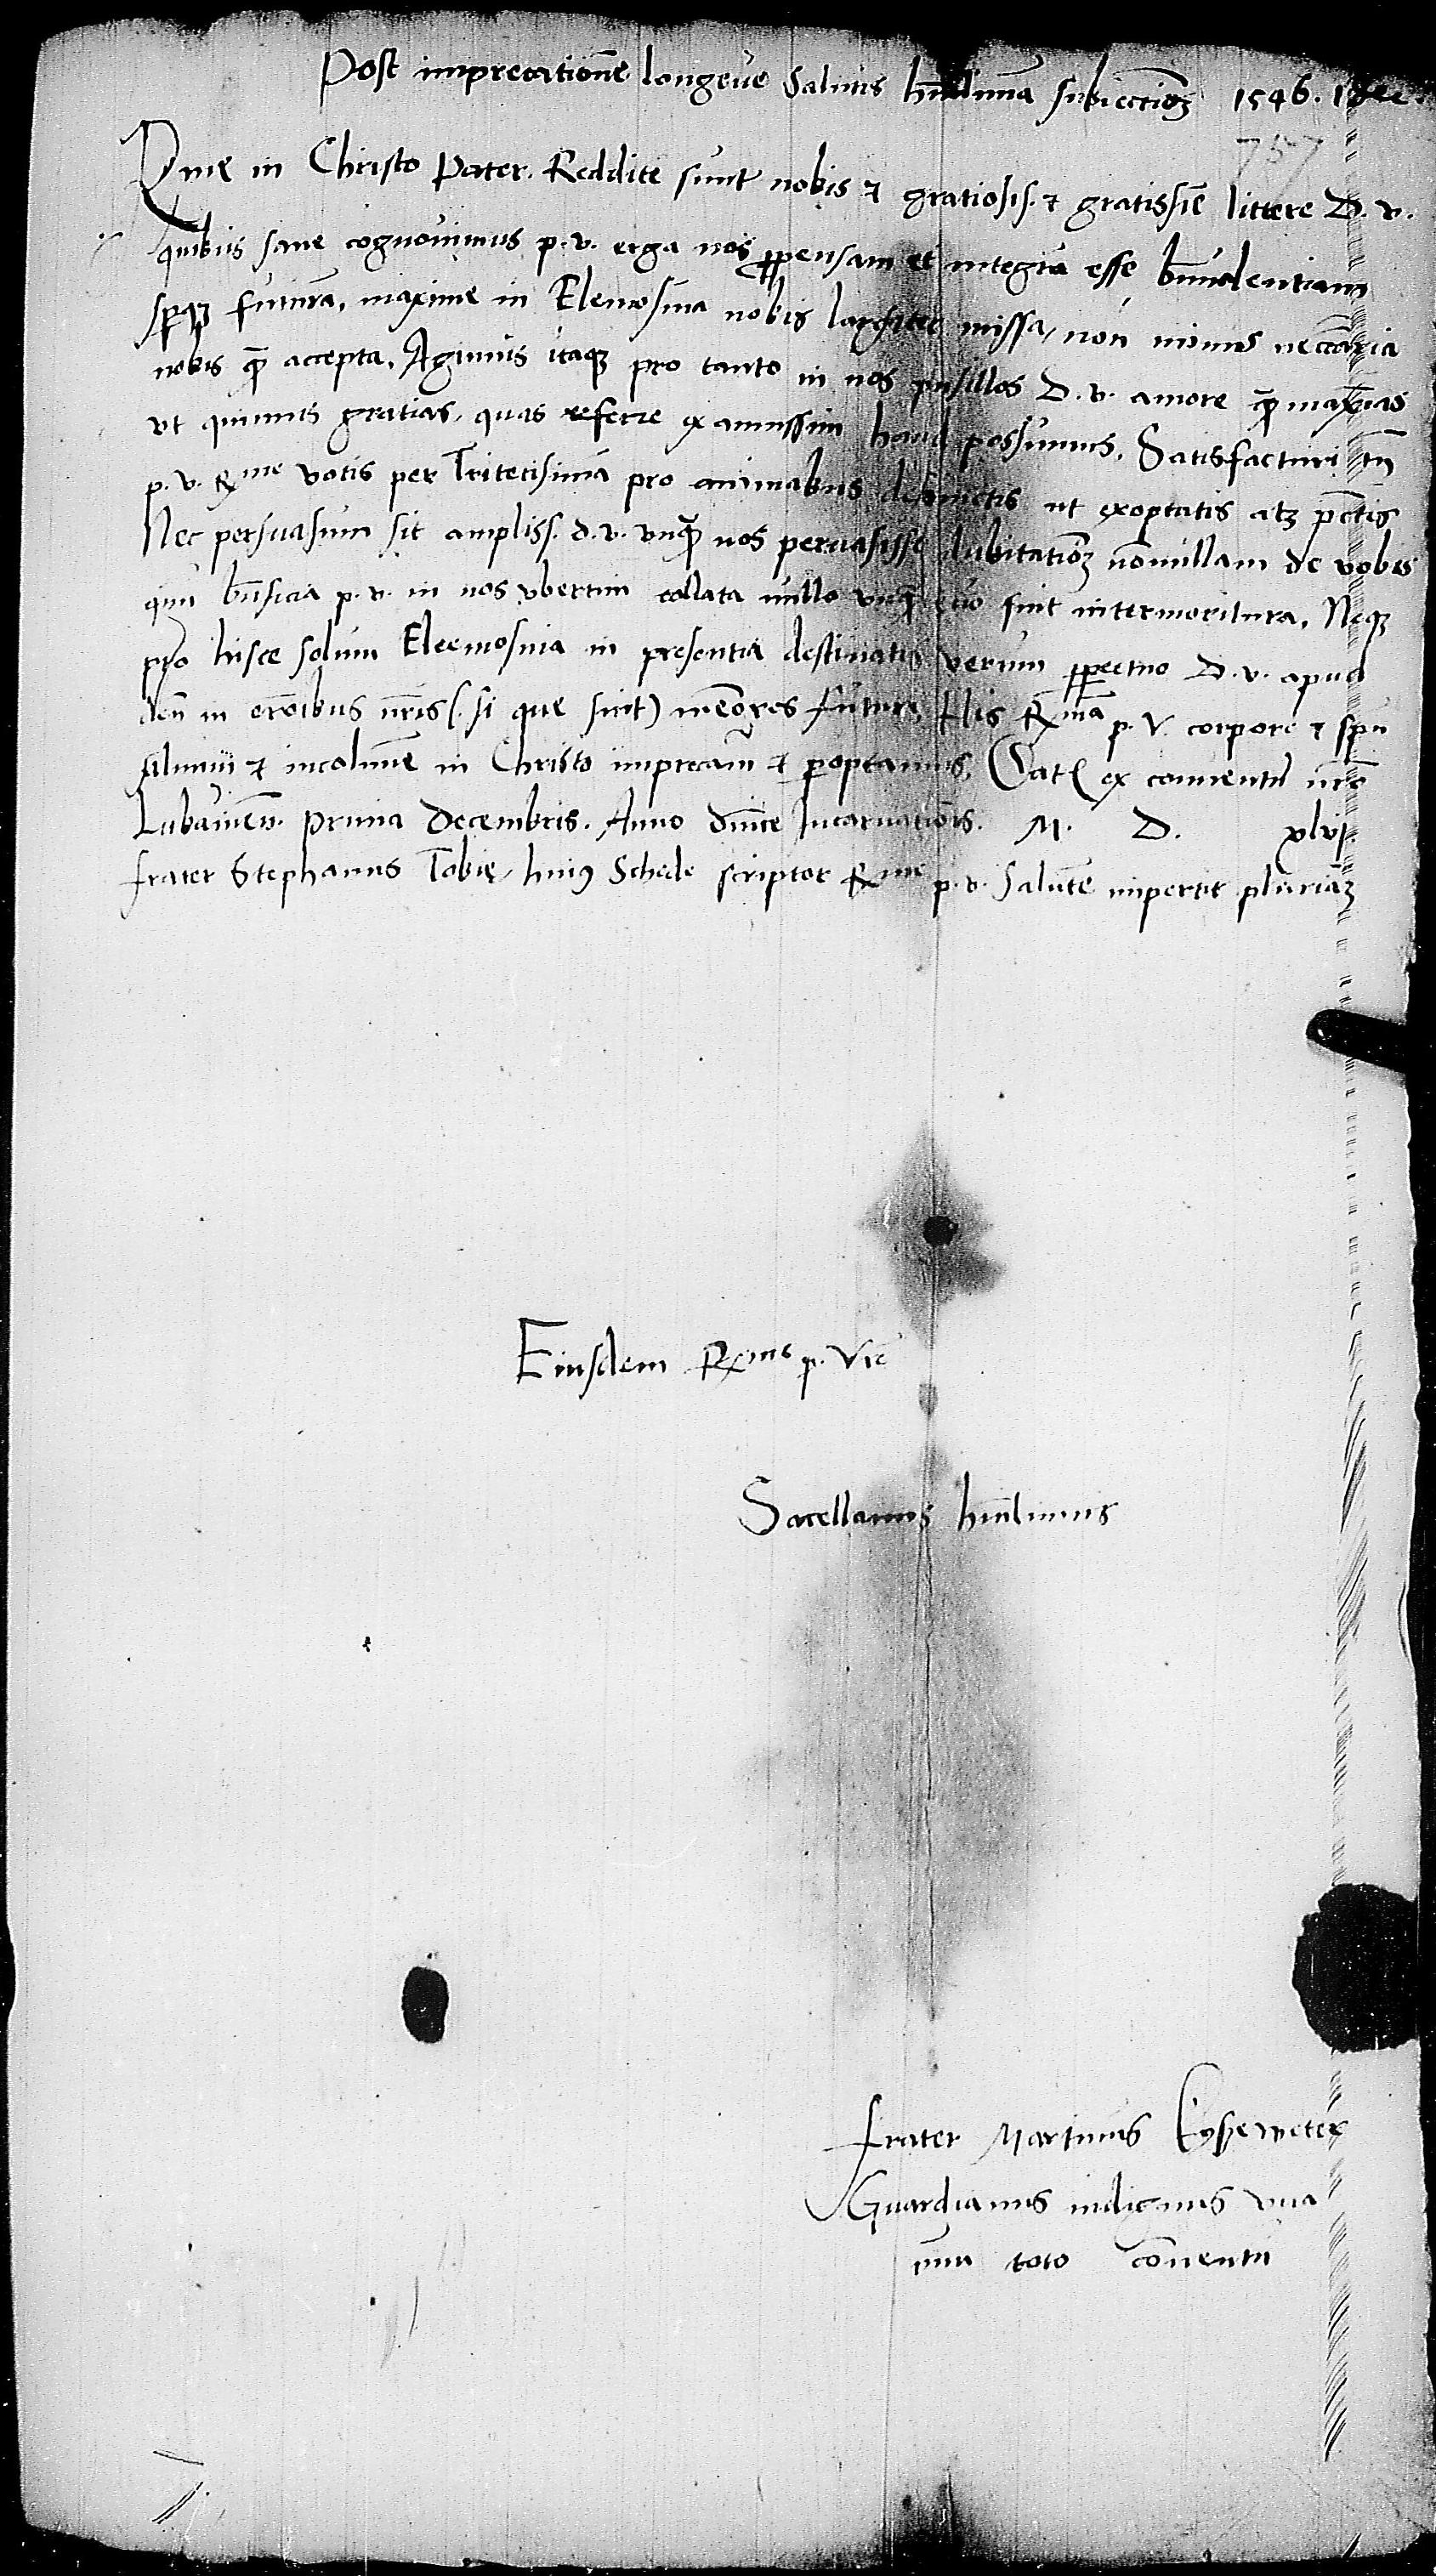 Post imprecationē longeve salutis hūilimā subiectiōȝ 1546. 1 Dec.
757
Rme in Christo Pater. Reddite sunt nobis et gratiosis. et gratissīe littere D. v.
quibus sane cognovimus p. v. erga nos ꝓpensam et integrā esse b̄nivolentiam
futurā, maxime in Elemosina nobis largiter missa, non minus neccāria
nobis qȝ̄ accepta. Agimus itaqȝ pro tanto in nos pusillos D. v. amore qȝ̄ maxīas
ut quimus gratias, quas referre examussim haud possumus. Satisfacturi tn̄
p. v. Rme votis per Tricesimā pro animabus defunctis ut exoptatis atqȝ petitis
Nec persuasum sit ampliss. d. v. unqȝ̄ nos pervasisse dubitatiōȝ nōnullam de vobis
b̄nficia p. v. in nos ubertim collata nullo unqȝ̄ evo sint intermoritura. Neqȝ
pro hisce solum Eleemosinā in presentiā destinatis verum ꝑpetuo D. v. apud
deū in orōibus nr̄is (si que sint) memores futuri. His Rmā p. V. corpore et spū
et incolumē in Christo imprecam̄ et peroptamus. Dat ex conventu nr̄o
Lubavień. prima Decembris. Anno dn̄ice Incarnatiōis. M. D. xlvj.
frater Stephanus Tobie, huius Schede scriptor Rme p. v. Salutē impertit plurimāȝ
Eiusdem Rme p. Vre
Sacellanus hūilimus
frater Martinus
Guardianus indignus una
cum toto cōventu